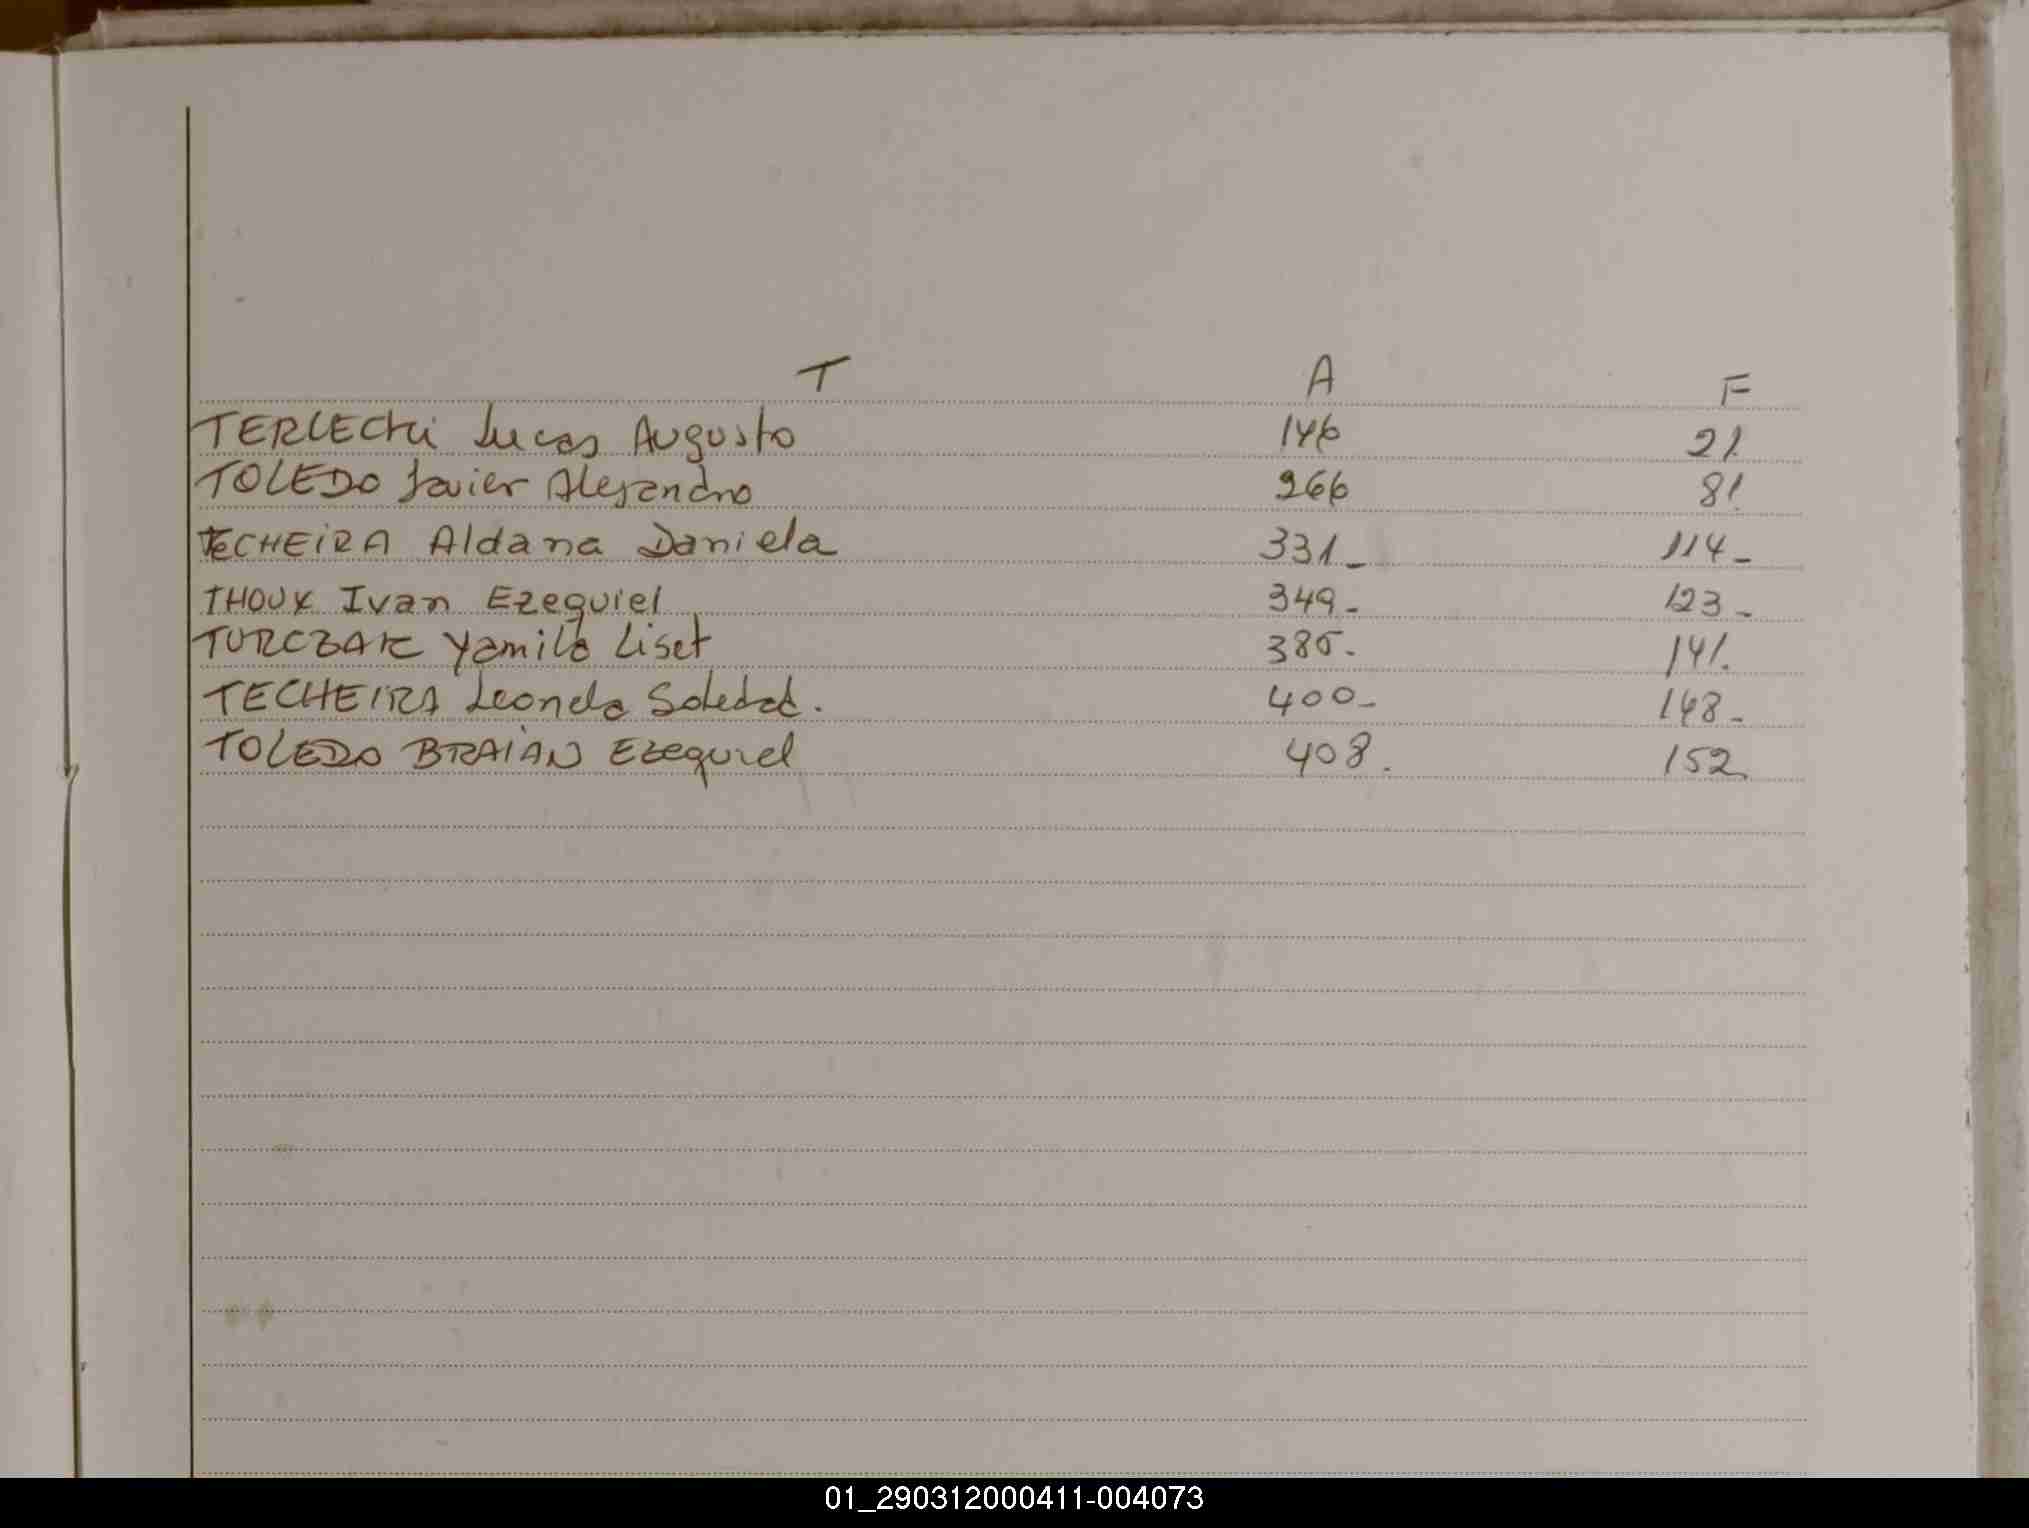 T A F
TERLECKi Lucas Augusto 146 21.
TOLEDO Javier Alejandro 266 81.
TECHEiRA Aldana Daniela 331- 114-
THOUX Ivan Ezequiel 349- 123-
TURCZAK Yamila Liset 385. 141.
TECHEIRA Leonela Soledad. 400- 148-
TOLEDO BRAiAN Ezequiel 408. 152.
01_290312000411-004073